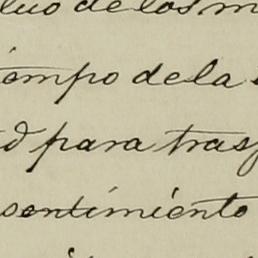 luo de los m
iempo de la
d para tras
sentimiento